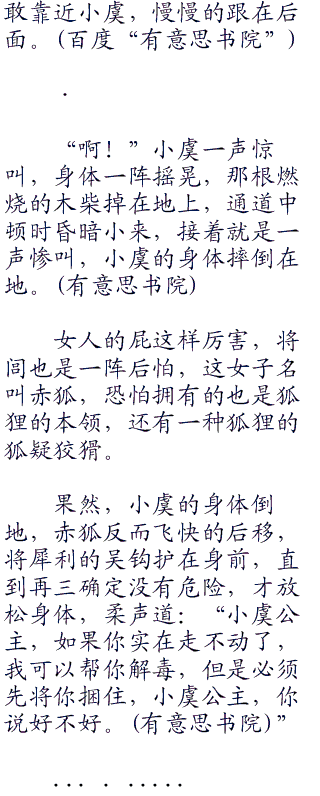 敢靠近小虞，慢慢的跟在后
面。(百度“有意思书院”)
.
“啊！”小虞一声惊
叫，身体一阵摇晃，那根燃
烧的木柴掉在地上，通道中
顿时昏暗小来，接着就是一
声惨叫，小虞的身体摔倒在
地。(有意思书院)
女人的屁这样厉害，将
闾也是一阵后怕，这女子名
叫赤狐，恐怕拥有的也是狐
狸的本领，还有一种狐狸的
狐疑狡猾。
果然，小虞的身体倒
地，赤狐反而飞快的后移，
将犀利的吴钩护在身前，直
到再三确定没有危险，才放
松身体，柔声道：“小虞公
主，如果你实在走不动了，
我可以帮你解毒，但是必须
先将你捆住，小虞公主，你
说好不好。(有意思书院)”
... . .....